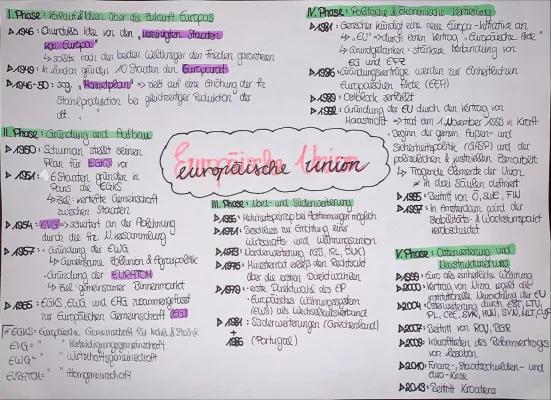 I. Phase: Vorlauf & Ideen über die Zukunft Europas
▷ 1946: Churchills Idee von den „Vereinigten Staaten
von Europa"
↳ sollte nach den beiden Weltkriegen den Frieden garantieren
▷ 1949: In London gründen 10 Staaten den Europarat
▷ 1946-50: sog. „Monnetplan" → zielt auf eine Erhöhung der frz.
Stahlproduktion bei gleichzeitiger Reduktion der
dt.
II. Phase: Gründung und Aufbau
▷ 1950: Schuman stellt seinen
Plan für EGKS vor
▷ 1951: 6 Staaten gründen in
Paris die EGKS
↳ Ziel: vertiefte Gemeinschaft
zwischen Staaten
▷ 1954: EVG → scheitert an der Ablehnung
durch die frz. N.versammlung
▷ 1957: · Gründung der EWG
↳ Gemeinsame Zollunion & Agrarpolitik
· Gründung der EURATOM
↳ Ziel gemeinsamer Binnenmarkt
▷ 1965: EGKS, EWG und EAG zusammengefasst
zur Europäischen Gemeinschaft (EG)
* EGKS = Europäische Gemeinschaft für Kohle & Stahl
EVG = " Verteidigungsgemeinschaft
EWG = " Wirtschaftsgemeinschaft
EURATOM = " Atomgemeinschaft
Europäische Union
III. Phase: Nord- und Süderweiterung
▷ 1966: Mehrheitsprinzip bei Abstimmungen möglich
▷ 1971: Beschluss zur Errichtung einer
Wirtschafts- und Währungsunion
▷ 1973: Norderweiterung (GB, RL, DWK)
▷ 1976: Ministerrat erlässt den Rechtsakt
über die ersten Direktwahlen
▷ 1979: · erste Direktwahl des EP
· Europäisches Währungssystem
(EWS) als Wechselkursverbund
▷ 1981: Süderweiterungen (Griechenland)
+
1986 (Portugal)
IV. Phase: Politische & ökonomische Vertiefung
▷ 1981: Genscher kündigt eine neue Europa-Initiative an
↳ „EU" → durch einen Vertrag „Europäische Akte"
↳ Grundgedanken: stärkere Verbindung von
EG und EPZ
▷ 1986: Gründungsverträge werden zur Einheitlichen
Europäischen Akte (EEA)
▷ 1989: Ostblock zerfällt
▷ 1992: Gründung der EU durch den Vertrag von
Maastricht → trat am 1. November 1993 in Kraft
· Beginn der gemein. Außen- und
Sicherheitspolitik (GASP) und der
polizeilichen & justiziellen Zsmarbeit
↳ Tragende Elemente der Union
in drei Säulen definiert
▷ 1995: Beitritt von Ö, SWE, FIN
▷ 1997: in Amsterdam wird der
Stabilitäts- & Wachstumspakt
verabschiedet
V. Phase: Osterweiterung und
Neustrukturierung
▷ 1999: Euro als einheitliche Währung
▷ 2000: Vertrag von Nizza regelt die
institutionelle Neuordnung der EU
▷ 2004: Osterweiterung durch EST, LTU,
PL, CZE, SVK, HUN, SVN, MLT, CYP
▷ 2007: Beitritt von ROU, BGR
▷ 2009: Inkrafttreten des Reformvertrags
von Lissabon
▷ 2010: Finanz-, Staatsschulden- und
Euro-Krise
▷ 2013: Beitritt Kroatiens